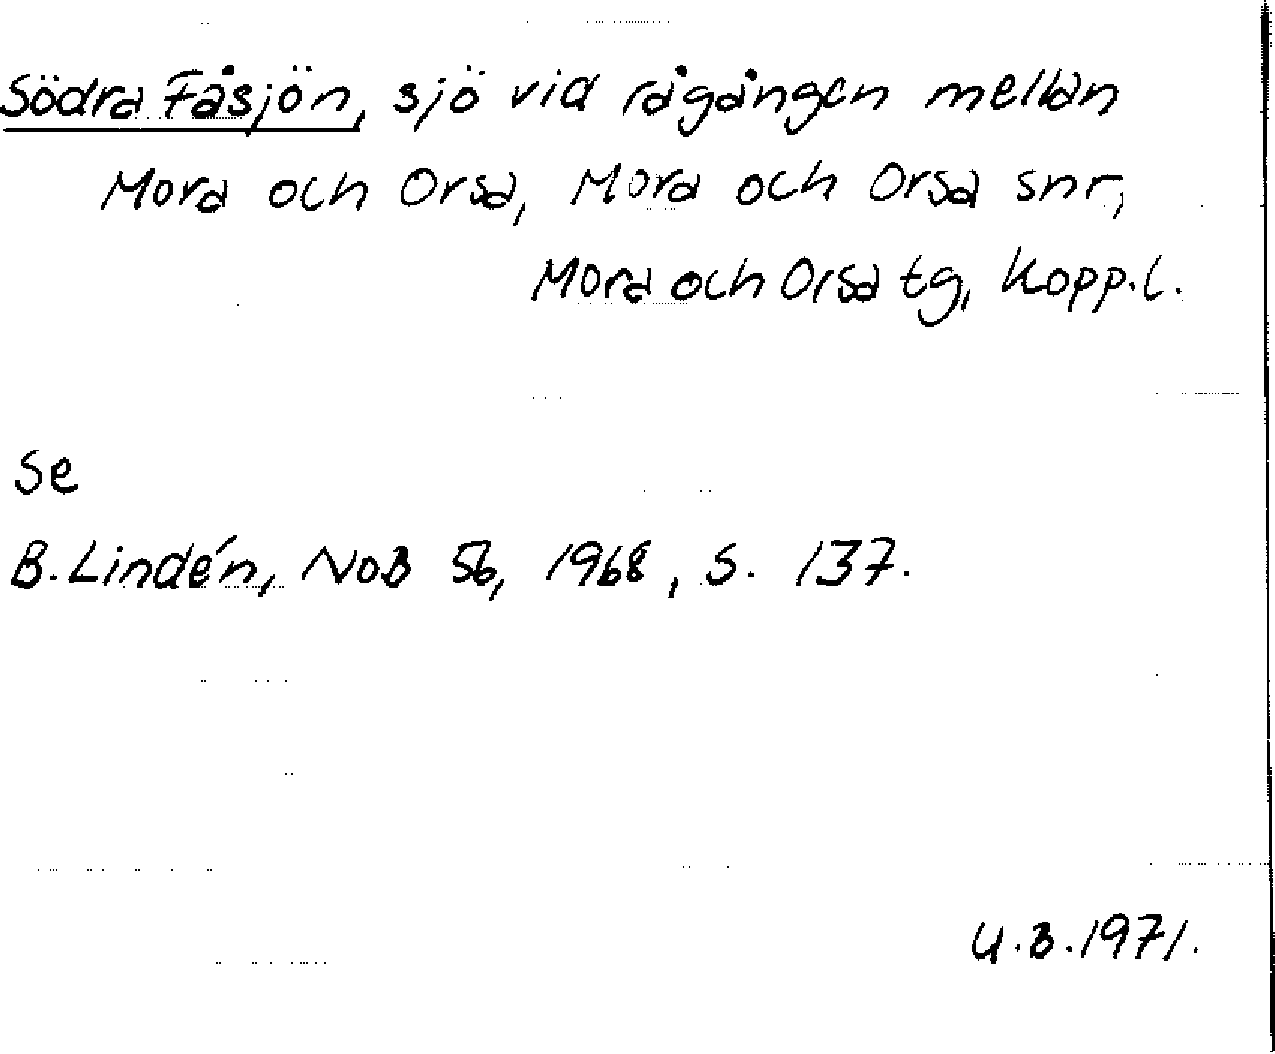 Södra Fåsjön, sjö vid rågången mellan
Mora och Orsa, Mora och Orsa snr,
Mora och Orsa tg, Kopp.l.
Se
B. Lindén, NoB 56, 1968, s. 137.
U.B.1971.